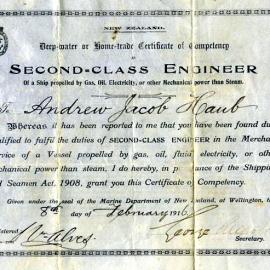 NEW ZEALAND.
Deep-water or Home-trade Certificate of Competency
AS
SECOND-CLASS ENGINEER
Of a Ship propelled by Gas, Oil, Electricity, or other Mechanical power than Steam.
To Andrew Jacob Haub
Whereas it has been reported to me that you have been found du
alified to fulfil the duties of SECOND-CLASS ENGINEER in the Merchan
ervice of a Vessel propelled by gas, oil, fluid, electricity, or other
echanical power than steam, I do hereby, in pursuance of the Shipping
d Seamen Act, 1908, grant you this Certificate of Competency.
Given under the seal of the Marine Department of New Zealand, at Wellington, this
8th day of February 1916
istered
Alves
George
Secretary.